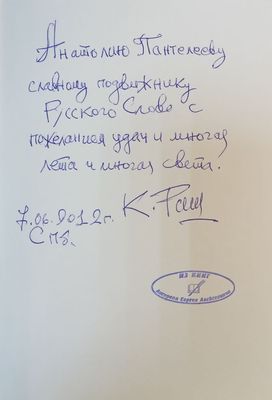 Анатолию Пантелееву
славному подвижнику
Русского Слова с
пожеланием удач и многая
лета и многая света!
К. Раш
7.06.2012г.
СПб.
ИЗ КНИГ
Сергея Алексеевича